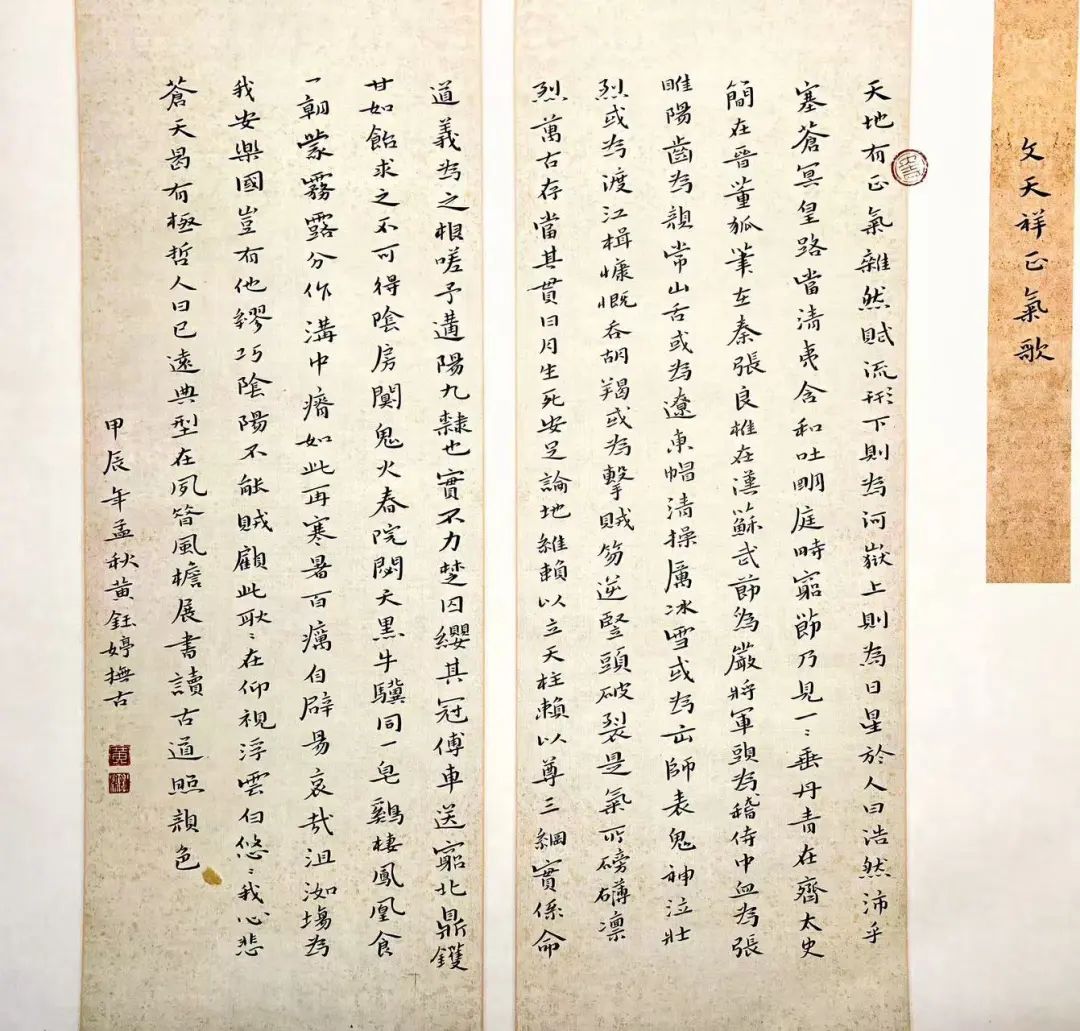 文天祥正氣歌
天地有正氣雜然賦流形下則為河嶽上則為日星於人曰浩然沛乎
塞蒼冥皇路當清夷含和吐明庭時窮節乃見一〻垂丹青在齊太史
簡在晉董狐筆在秦張良椎在漢蘇武節為嚴將軍頭為稽侍中血為張
睢陽齒為顏常山舌或為遼東帽清操厲冰雪或為出師表鬼神泣壯
烈或為渡江楫慷慨吞胡羯或為擊賊笏逆豎頭破裂是氣所磅礴凜
烈萬古存當其貫日月生死安足論地維賴以立天柱賴以尊三綱實係命
道義為之根嗟予遘陽九隸也實不力楚囚纓其冠傅車送窮北鼎鑊
甘如飴求之不可得陰房闃鬼火春院閟天黑牛驥同一皂鷄棲鳳凰食
一朝蒙霧露分作溝中瘠如此再寒暑百癘自辟易哀哉沮洳場為
我安樂國豈有他繆巧陰陽不能賊顧此耿〻在仰視浮雲白悠〻我心悲
蒼天曷有極哲人日已遠典型在夙昔風檐展書讀古道照顏色
甲辰年孟秋黃鈺婷撫古